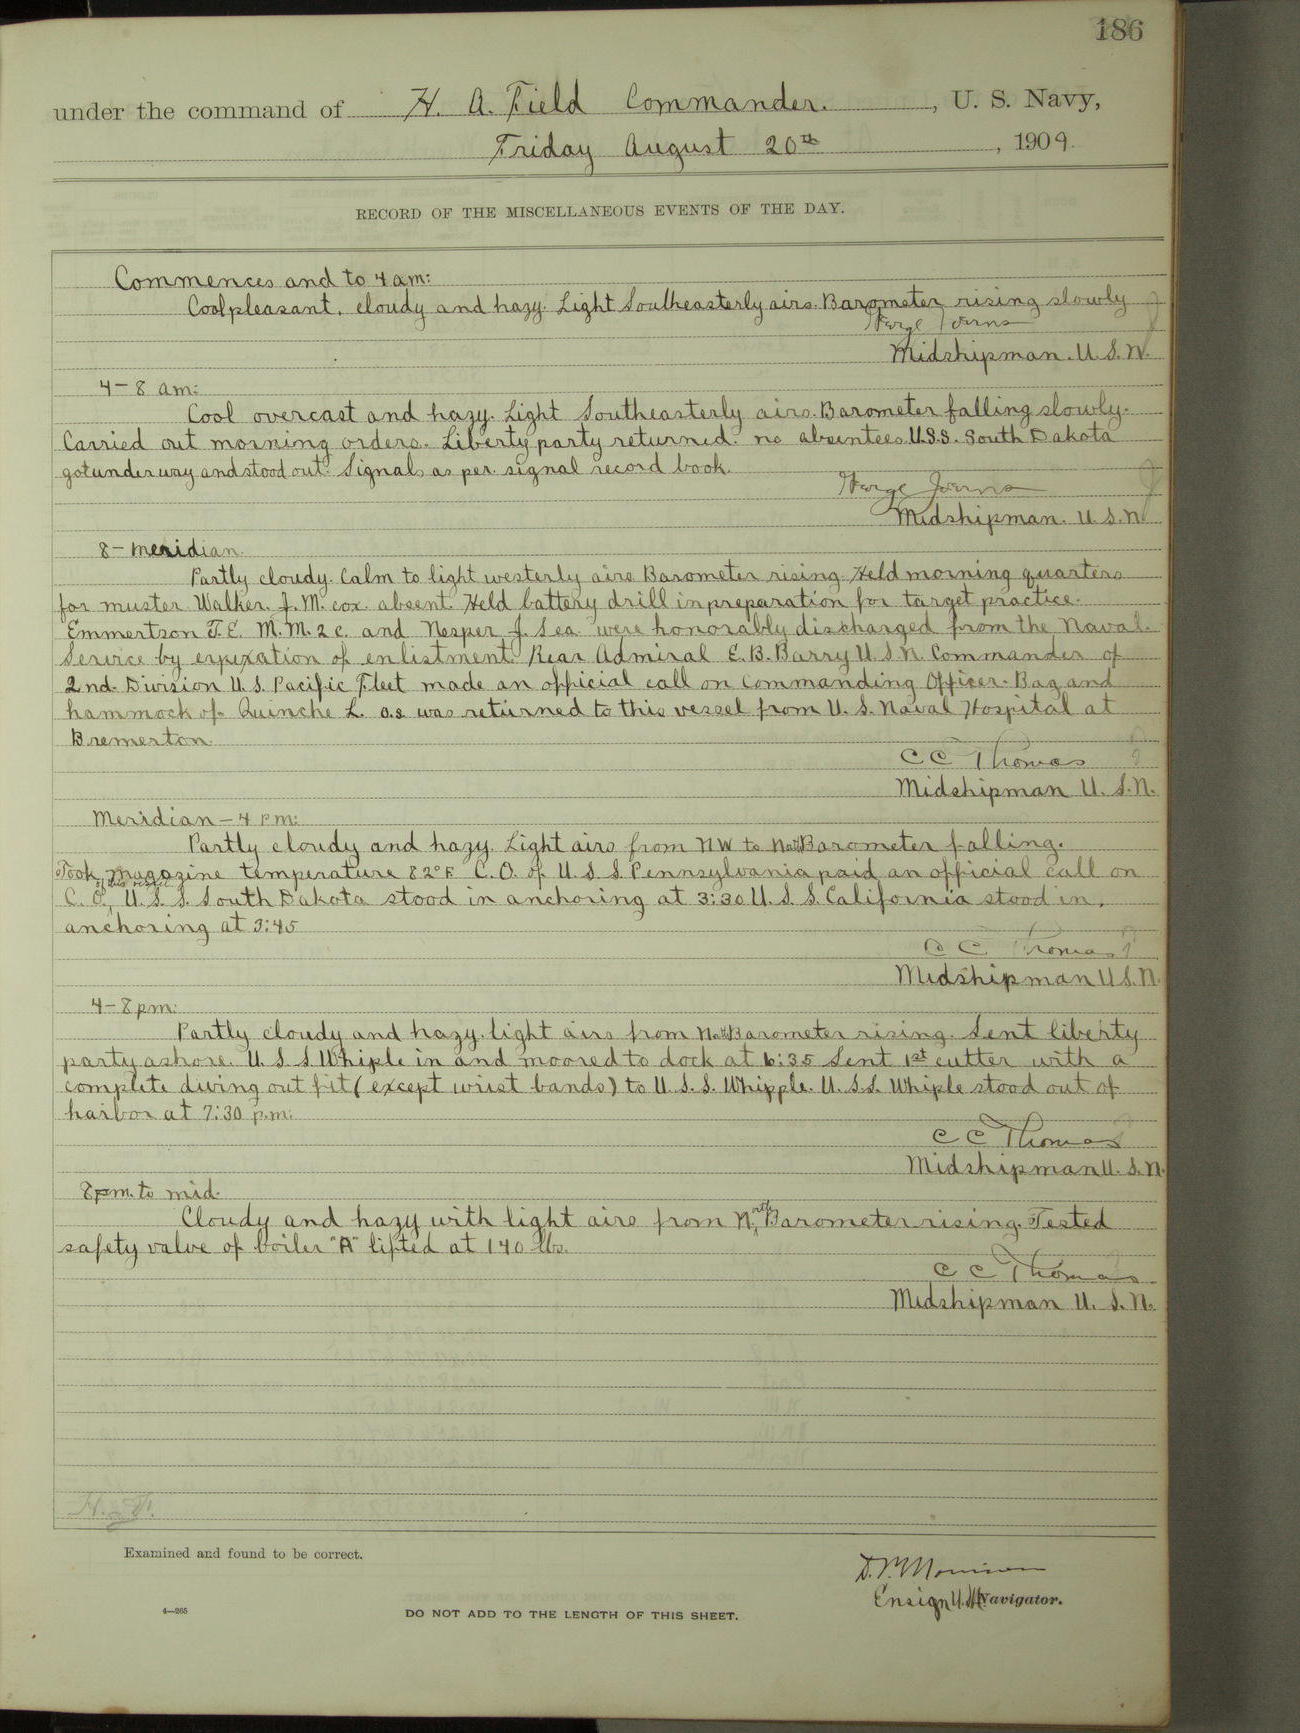 186
under the command of H. A. Field Commander. , U. S. Navy,
Friday August 20th , 1909.
RECORD OF THE MISCELLANEOUS EVENTS OF THE DAY.
Commences and to 4 am:
Cool pleasant, cloudy and hazy. Light Southeasterly airs. Barometer rising slowly
Midshipman. U. S. N.
4-8 am:
Cool overcast and hazy. Light Southeasterly airs. Barometer falling slowly.
Carried out morning orders. Liberty party returned. no absentees. U.S.S. South Dakota
got underway and stood out. Signals as per signal record book.
Midshipman. U. S. N.
8-meridian.
Partly cloudy. Calm to light westerly airs Barometer rising. Held morning quarters
for muster. Walker. J. M. cox. absent. Held battery drill in preparation for target practice.
Emmertson T. E. M. M. 2 c. and Nesper J. Sea. were honorably discharged from the Naval
Service by expiration of enlistment. Rear Admiral E. B. Barry U. S. N. Commander of
2nd. Division U. S. Pacific Fleet made an official call on Commanding Officer. Bag and
hammock of Quinche L. O.S was returned to this vessel from U. S. Naval Hospital at
Bremerton.
C C Thomas
Midshipman U. S. N.
Meridian-4 pm:
Partly cloudy and hazy. Light airs from NW to North Barometer falling.
Took magazine temperature 82°F. C. O. of U. S. S. Pennsylvania paid an official call on
C. O. of this vessel U. S. S. South Dakota stood in anchoring at 3:30 U. S. S. California stood in,
anchoring at 3:45
C C Thomas
Midshipman U S. N.
4-8 pm:
Partly cloudy and hazy. light airs from North Barometer rising. Sent liberty
party ashore. U. S. S. Whiple in and moored to dock at 6:35 Sent 1st cutter with a
complete diving out fit (except wrist bands) to U. S. S. Whipple. U. S.S. Whiple stood out of
harbor at 7:30 p.m.
C C Thomas
Midshipman U. S. N.
8 pm. to mid.
Cloudy and hazy with light airs from North Barometer rising. Tested
safety valve of boiler "A" lifted at 140 lbs.
C C Thomas
Midshipman U. S. N.
H. A. F.
Examined and found to be correct.
Ensign U.S.N. Navigator.
4—265
DO NOT ADD TO THE LENGTH OF THIS SHEET.